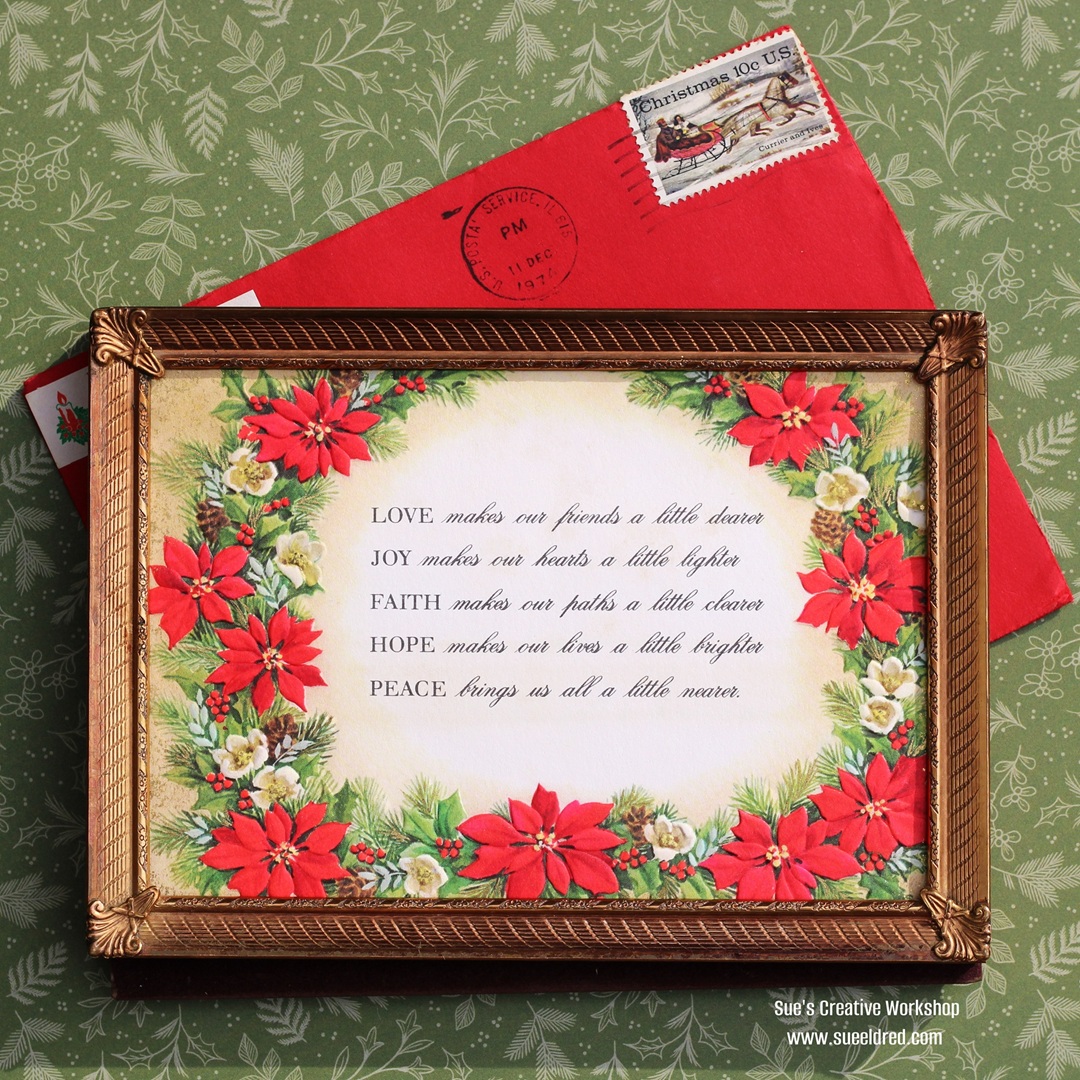 Christmas 10c U.S.
Currier and Ives
U.S. POSTAL SERVICE, IL 618
PM
11 DEC
1974
LOVE makes our friends a little dearer
JOY makes our hearts a little lighter
FAITH makes our paths a little clearer
HOPE makes our lives a little brighter
PEACE brings us all a little nearer.
Sue's Creative Workshop
www.sueeldred.com